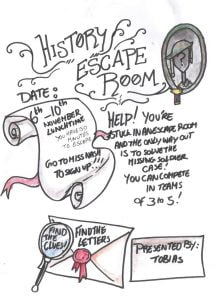 HISTORY
ESCAPE
ROOM
DATE:
6th 10th
NOVEMBER
LUNCHTIME
YOU HAVE 20
MINUTES TO
ESCAPE
GO TO MISS NASH
TO SIGN UP!!!
HELP! YOU'RE
STUCK IN AN ESCAPE ROOM
AND THE ONLY WAY OUT
IS TO SOLVE THE
MISSING SOLDIER
CASE!
YOU CAN COMPETE
IN TEAMS
OF 3 to 5!
FIND
THE
CLUES!
FIND THE
LETTERS
PRESENTED BY:
TOBIAS